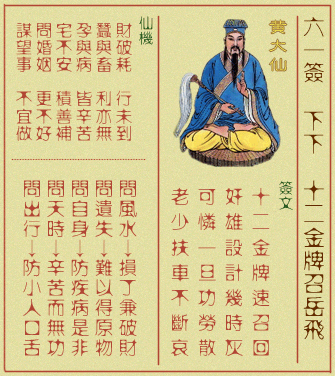 六一簽 下下 十二金牌召岳飛
黃大仙
簽文
十二金牌速召回
奸雄設計幾時灰
可憐一旦功勞散
老少扶車不斷哀
仙機
財破耗 行未到
蠶與畜 利亦無
孕與病 皆辛苦
宅不安 積善補
問婚姻 更不好
謀望事 不宜做
問風水→損丁兼破財
問遺失→難以得原物
問自身→防疾病是非
問天時→辛苦而無功
問出行→防小人口舌